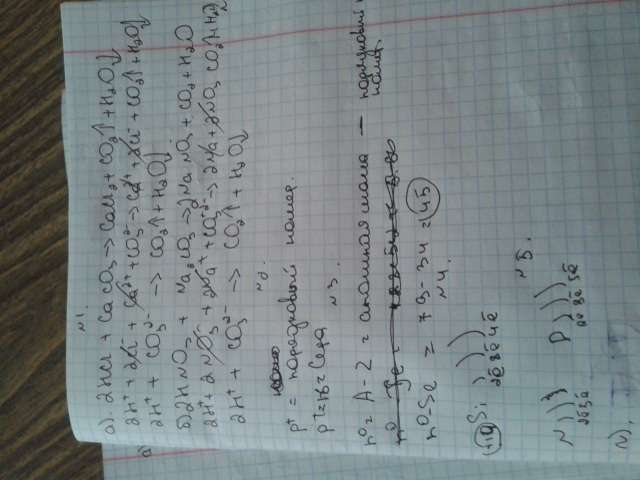 №1.
а). 2HCl + CaCO₃ → CaCl₂ + CO₂↑ + H₂O↓
2H⁺ + 2Cl⁻ + Ca²⁺ + CO₃²⁻ → Ca²⁺ + 2Cl⁻ + CO₂↑ + H₂O↓
2H⁺ + CO₃²⁻ → CO₂↑ + H₂O↓
б) 2HNO₃ + Na₂CO₃ → 2NaNO₃ + CO₂ + H₂O
2H⁺ + 2NO₃⁻ + 2Na⁺ + CO₃²⁻ → 2Na + 2NO₃ CO₂↑ + H₂O
2H⁺ + CO₃²⁻ → CO₂↑ + H₂O↓
№2.
p⁺ = порядковый номер.
p⁺ = 16 = Сера
№3.
n⁰ = A - Z = атомная масса — порядковый
номер.
n⁰ - Se = 79 - 34 = 45
№4.
+14 Si )))
2ē 8ē 4ē
№5.
N ))) P )))
2ē 8ē 5ē